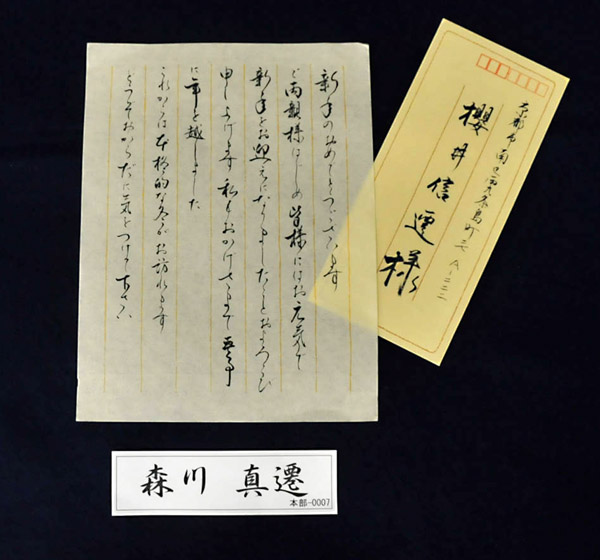 新年のおめでとうございます
ご両親様はじめ皆様にはお元気で
新年をお迎えになりましたこととおよろこび
申し上げます 私もおかげさまで 無事
に年を越しました
これからは本格的な冬がお訪れます
どうぞおからだに気をつけて下さい
京都市南区
櫻井信運様
森川 真遷
本部-0007